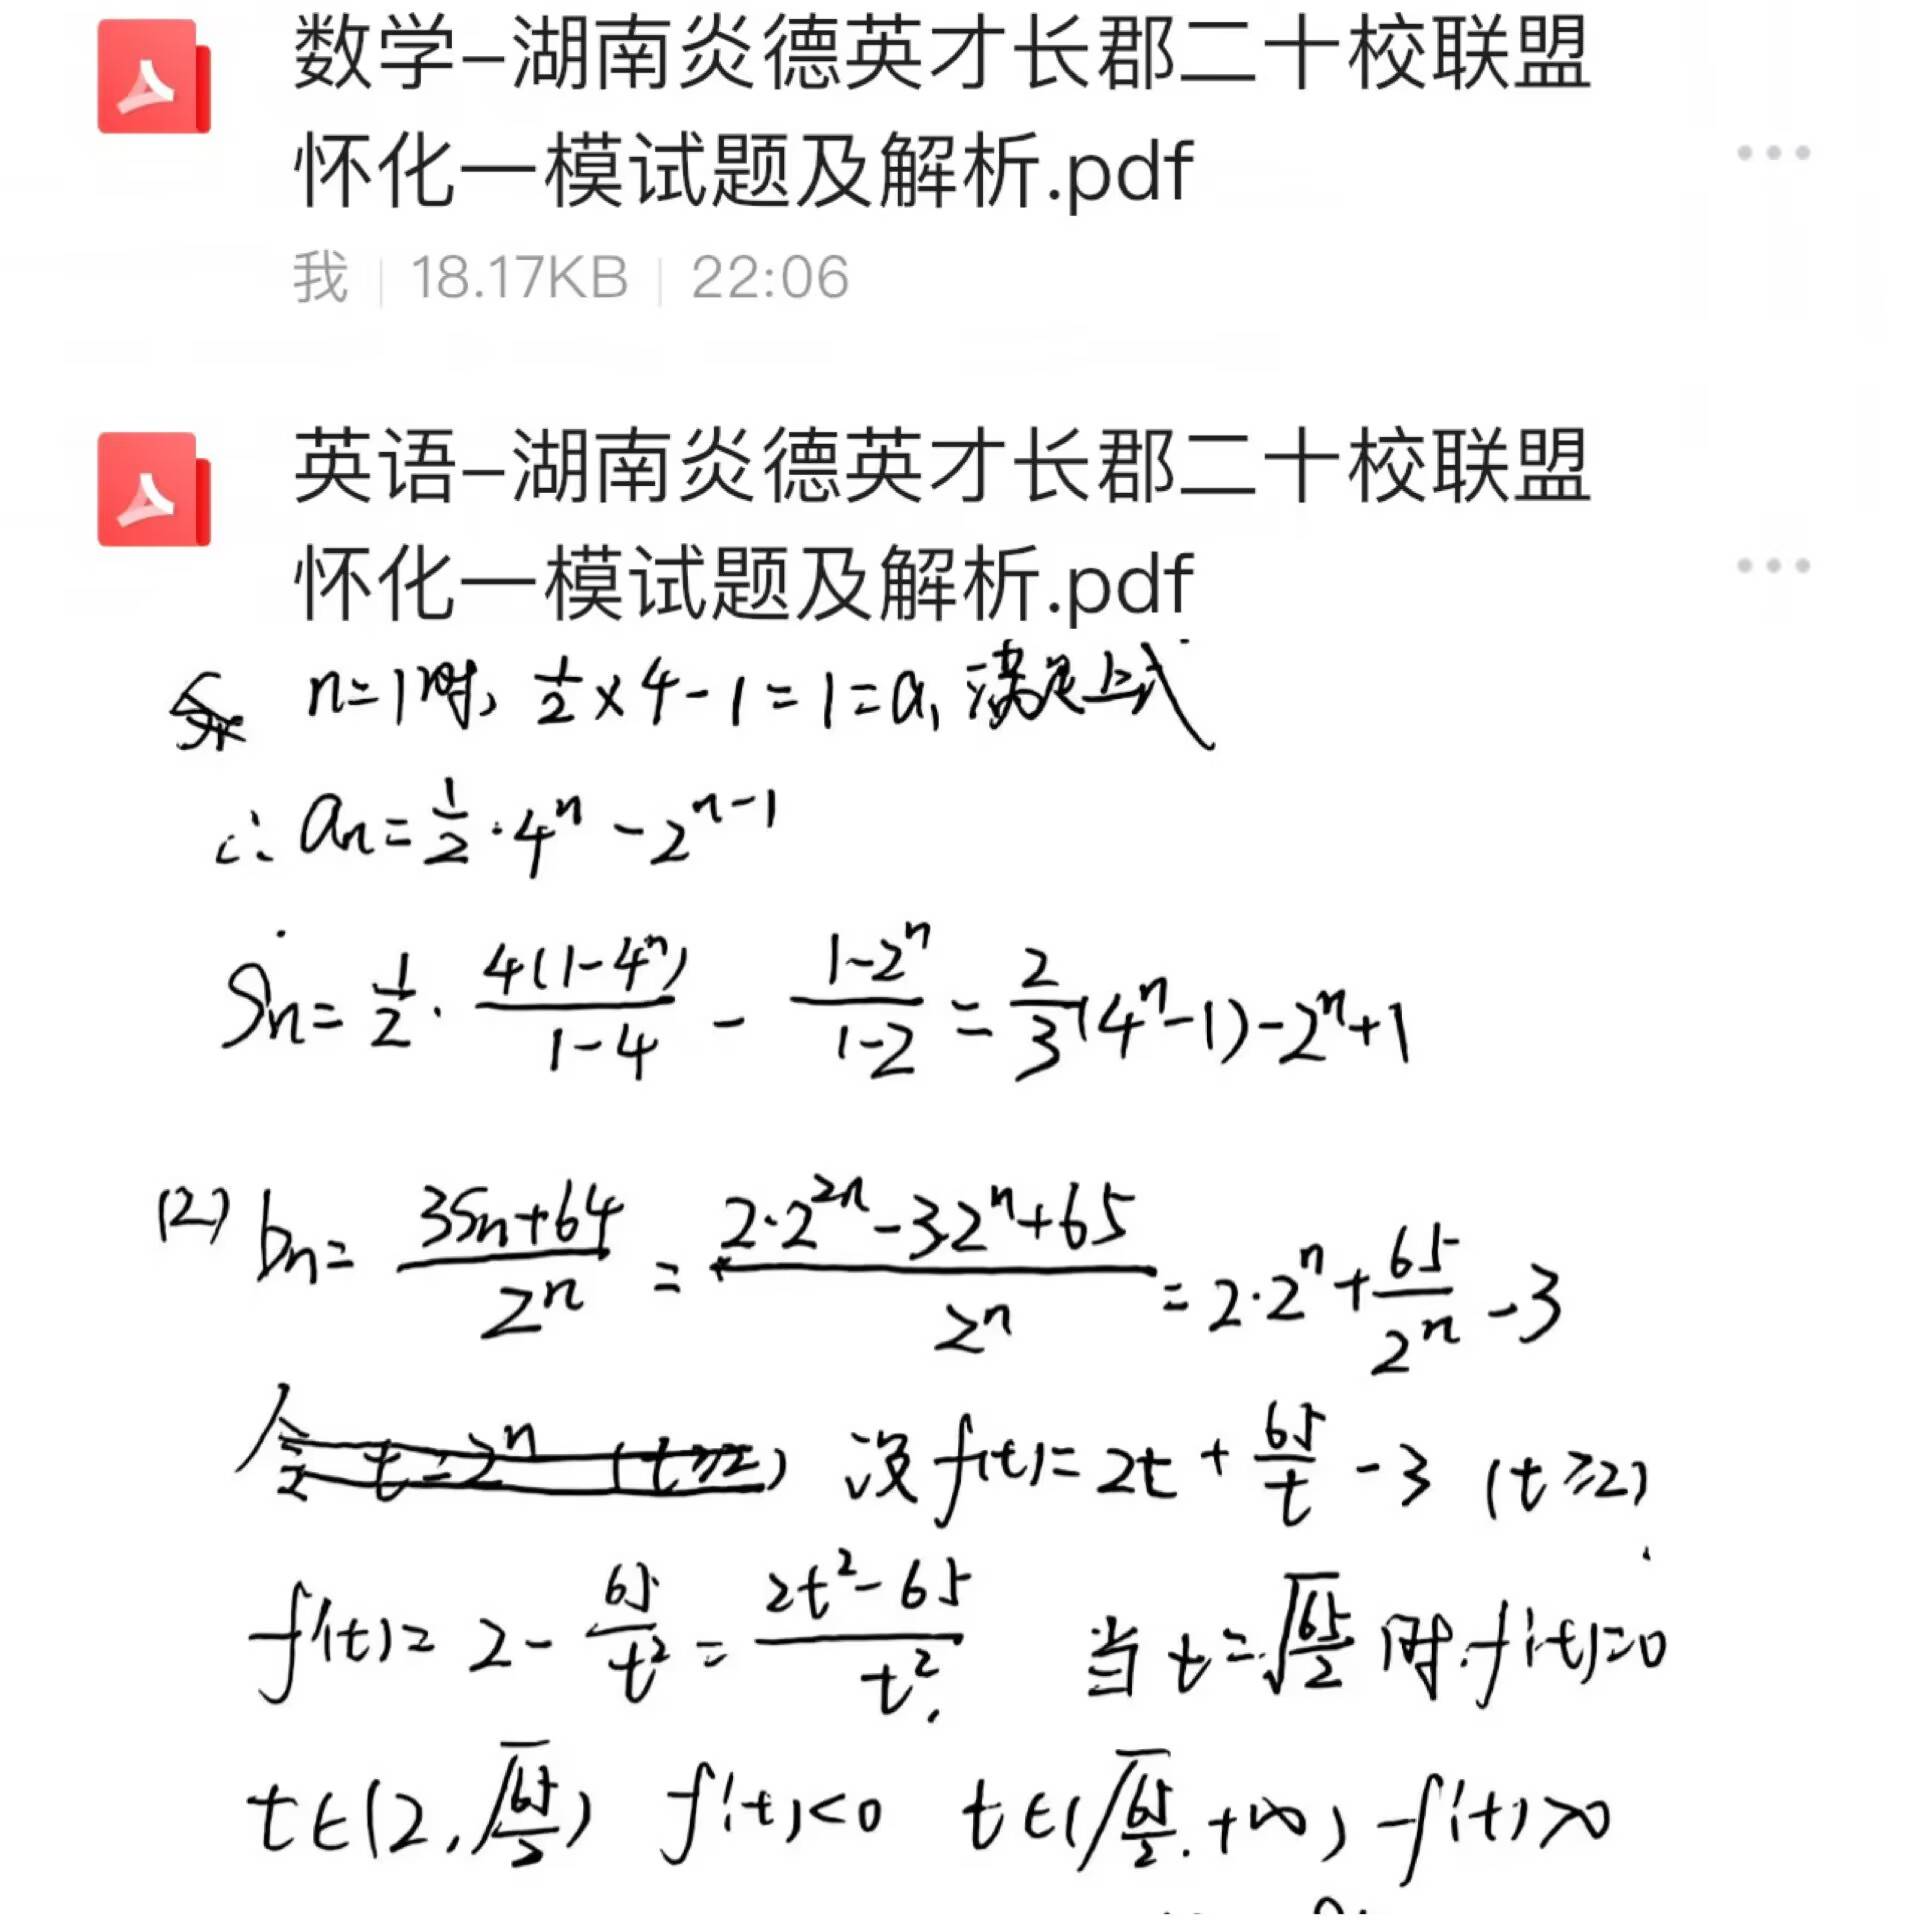 数学-湖南炎德英才长郡二十校联盟
怀化一模试题及解析.pdf
我 | 18.17KB | 22:06
英语-湖南炎德英才长郡二十校联盟
怀化一模试题及解析.pdf
n=1时, 1/2×4-1=1=a₁ 满足上式
∴ aₙ=1/2·4ⁿ-2ⁿ⁻¹
Sₙ=1/2·4(1-4ⁿ)/(1-4)-(1-2ⁿ)/(1-2)=2/3(4ⁿ-1)-2ⁿ+1
(2) bₙ=(3Sₙ+64)/2ⁿ=(2·2²ⁿ-3·2ⁿ+65)/2ⁿ=2·2ⁿ+65/2ⁿ-3
令 t=2ⁿ (t≥2) 设f(t)=2t+65/t-3 (t≥2)
f'(t)=2-65/t²=(2t²-65)/t² 当t=√(65/2)时,f'(t)=0
t∈(2,√(65/2)) f'(t)<0 t∈(√(65/2),+∞) f'(t)>0